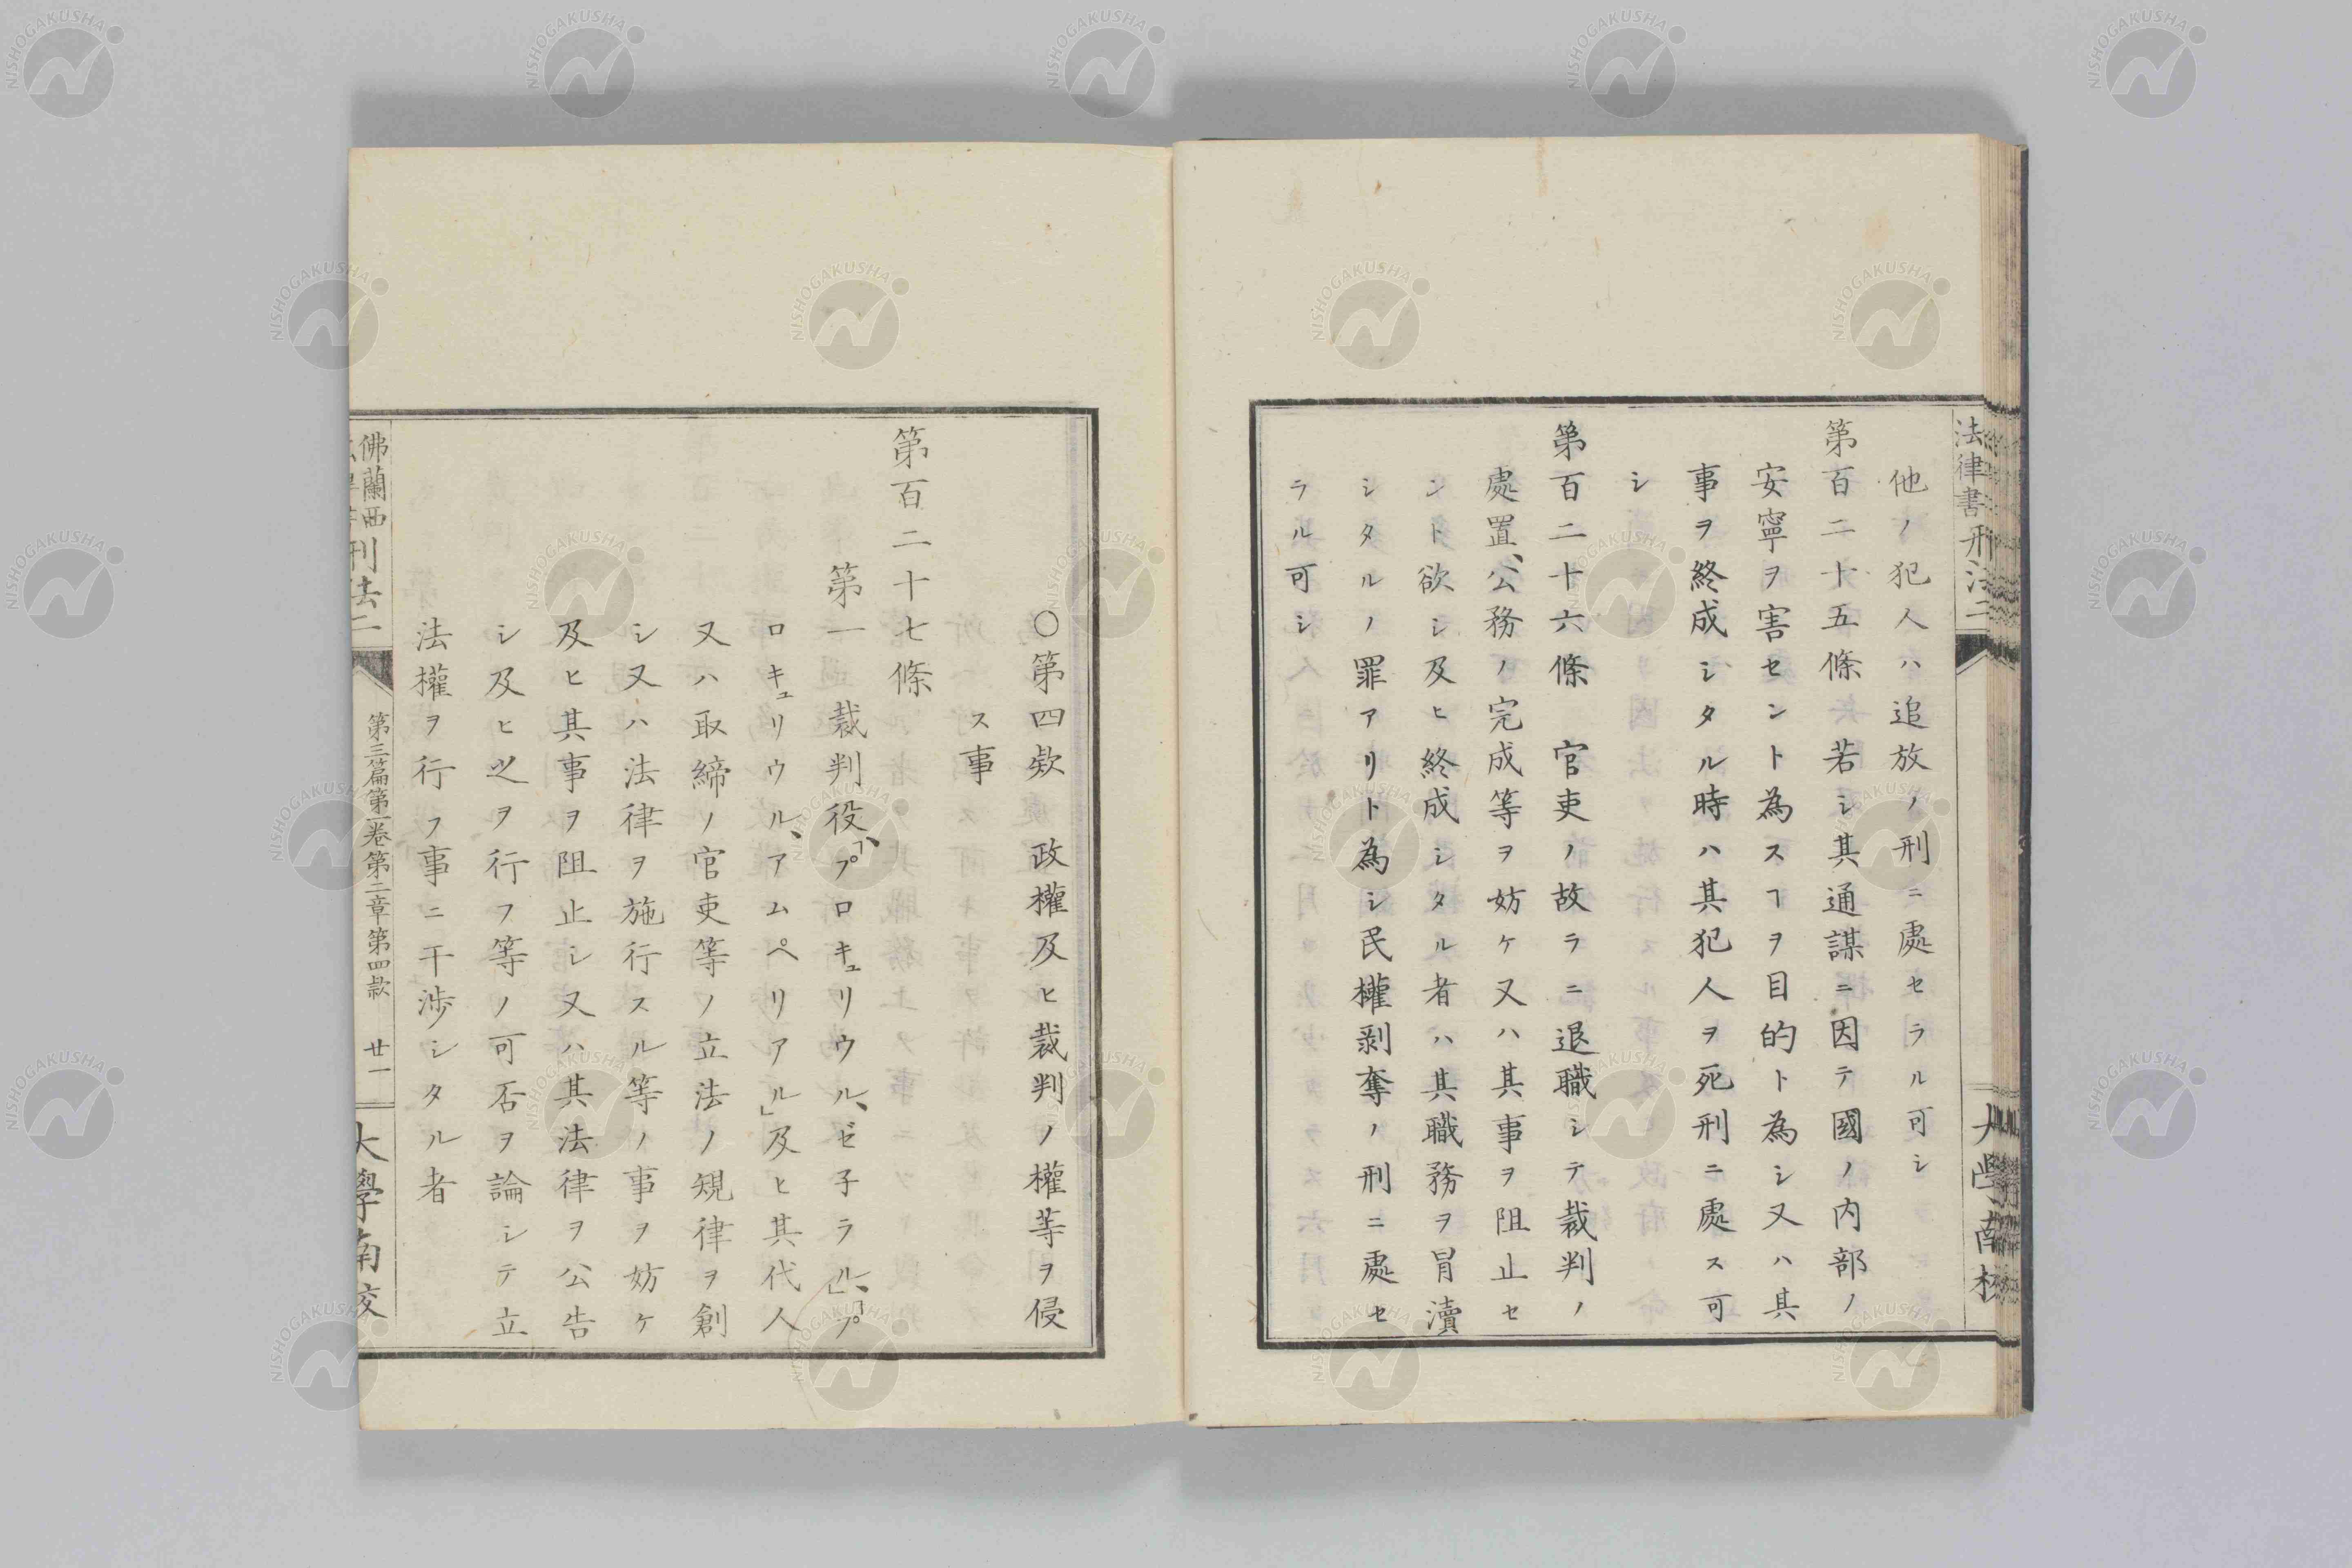 法律書刑法二
他ノ犯人ハ追放ノ刑ニ處セラル可シ
第百二十五條 若シ其通謀ニ因テ國ノ内部ノ
安寧ヲ害セント為スヿヲ目的ト為シ又ハ其
事ヲ終成シタル時ハ其犯人ヲ死刑ニ處ス可
シ
第百二十六條 官吏ノ故ラニ退職シテ裁判ノ
處置、公務ノ完成等ヲ妨ケ又ハ其事ヲ阻止セ
ント欲シ及ヒ終成シタル者ハ其職務ヲ冒瀆
シタルノ罪アリト為シ民權剥奪ノ刑ニ處セ
ラル可シ
大學南校
〇第四欵 政權及ヒ裁判ノ權等ヲ侵
ス事
第百二十七條
第一 裁判役、「プロキュリウル、ゼ子ラル」、「プ
ロキュリウル、アムペリアル」及ヒ其代人
又ハ取締ノ官吏等ノ立法ノ規律ヲ創
シ又ハ法律ヲ施行スル等ノ事ヲ妨ケ
及ヒ其事ヲ阻止シ又ハ其法律ヲ公告
シ及ヒ之ヲ行フ等ノ可否ヲ論シテ立
法權ヲ行フ事ニ干渉シタル者
佛蘭西
刑法二
第三篇第一卷第二章第四款 廿一
大學南校
NISHOGAKUSHA